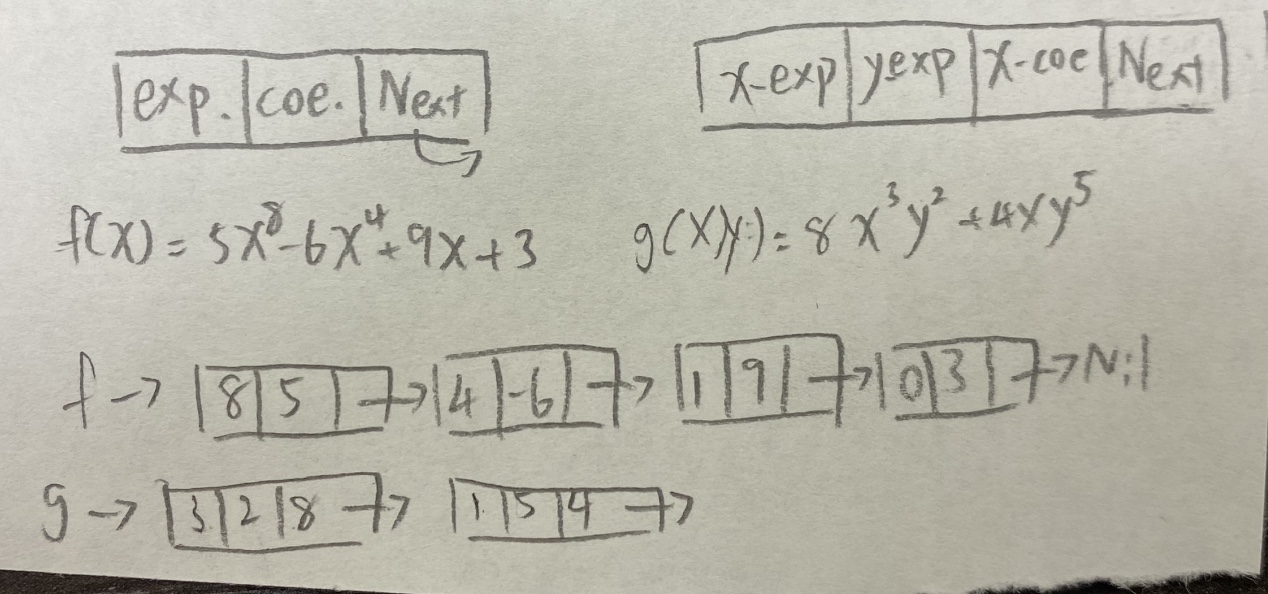 |exp.|coe.|Next| |x-exp|yexp|x-coe|Next|
f(x) = 5x⁸-6x⁴+9x+3 g(x,y) = 8x³y²+4xy⁵
f → |8|5| → |4|-6| → |1|9| → |0|3| → Nil
g → |3|2|8| → |1|5|4| →